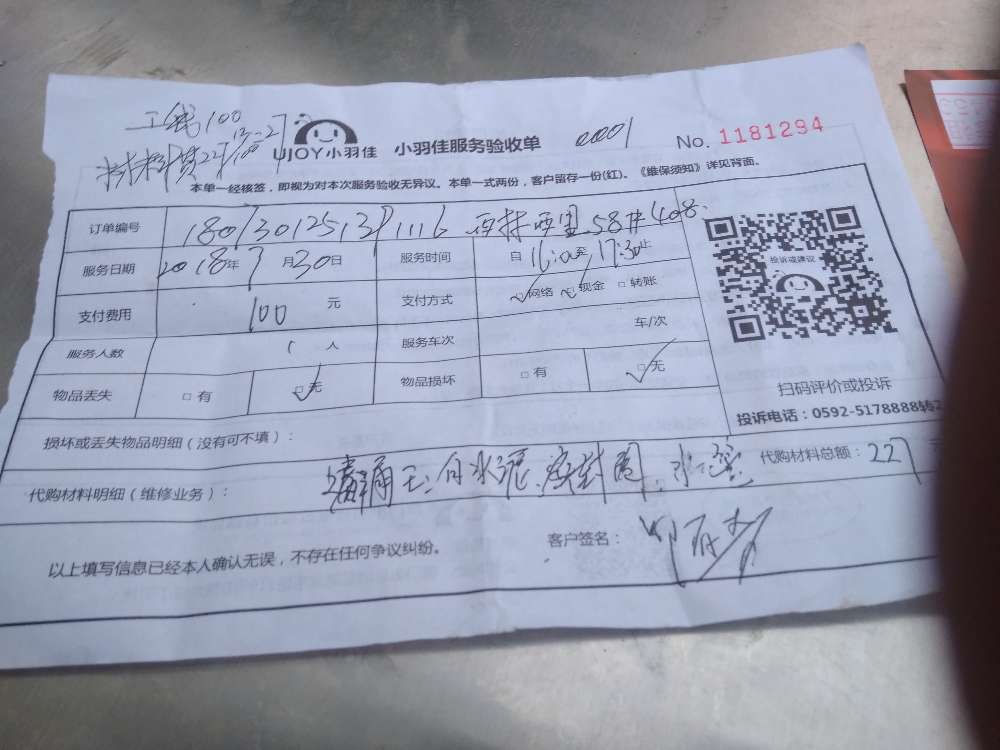 工钱100
材料费227
UJOY小羽佳 小羽佳服务验收单 0001 No. 1181294
本单一经核签，即视为对本次服务验收无异议。本单一式两份，客户留存一份(红)。《维保须知》详见背面。
订单编号 58# 408
服务日期 2018年7月30日 服务时间 自16:00至17:30止
支付费用 100 元 支付方式 □网络 □现金 □转账
服务人数 1 人 服务车次 车/次
物品丢失 □有 □无 物品损坏 □有 □无
投诉或建议
扫码评价或投诉
投诉电话：0592-5178888转2
损坏或丢失物品明细（没有可不填）：
代购材料明细（维修业务）： 白水泥、密封圈、 代购材料总额：227
以上填写信息已经本人确认无误，不存在任何争议纠纷。 客户签名：